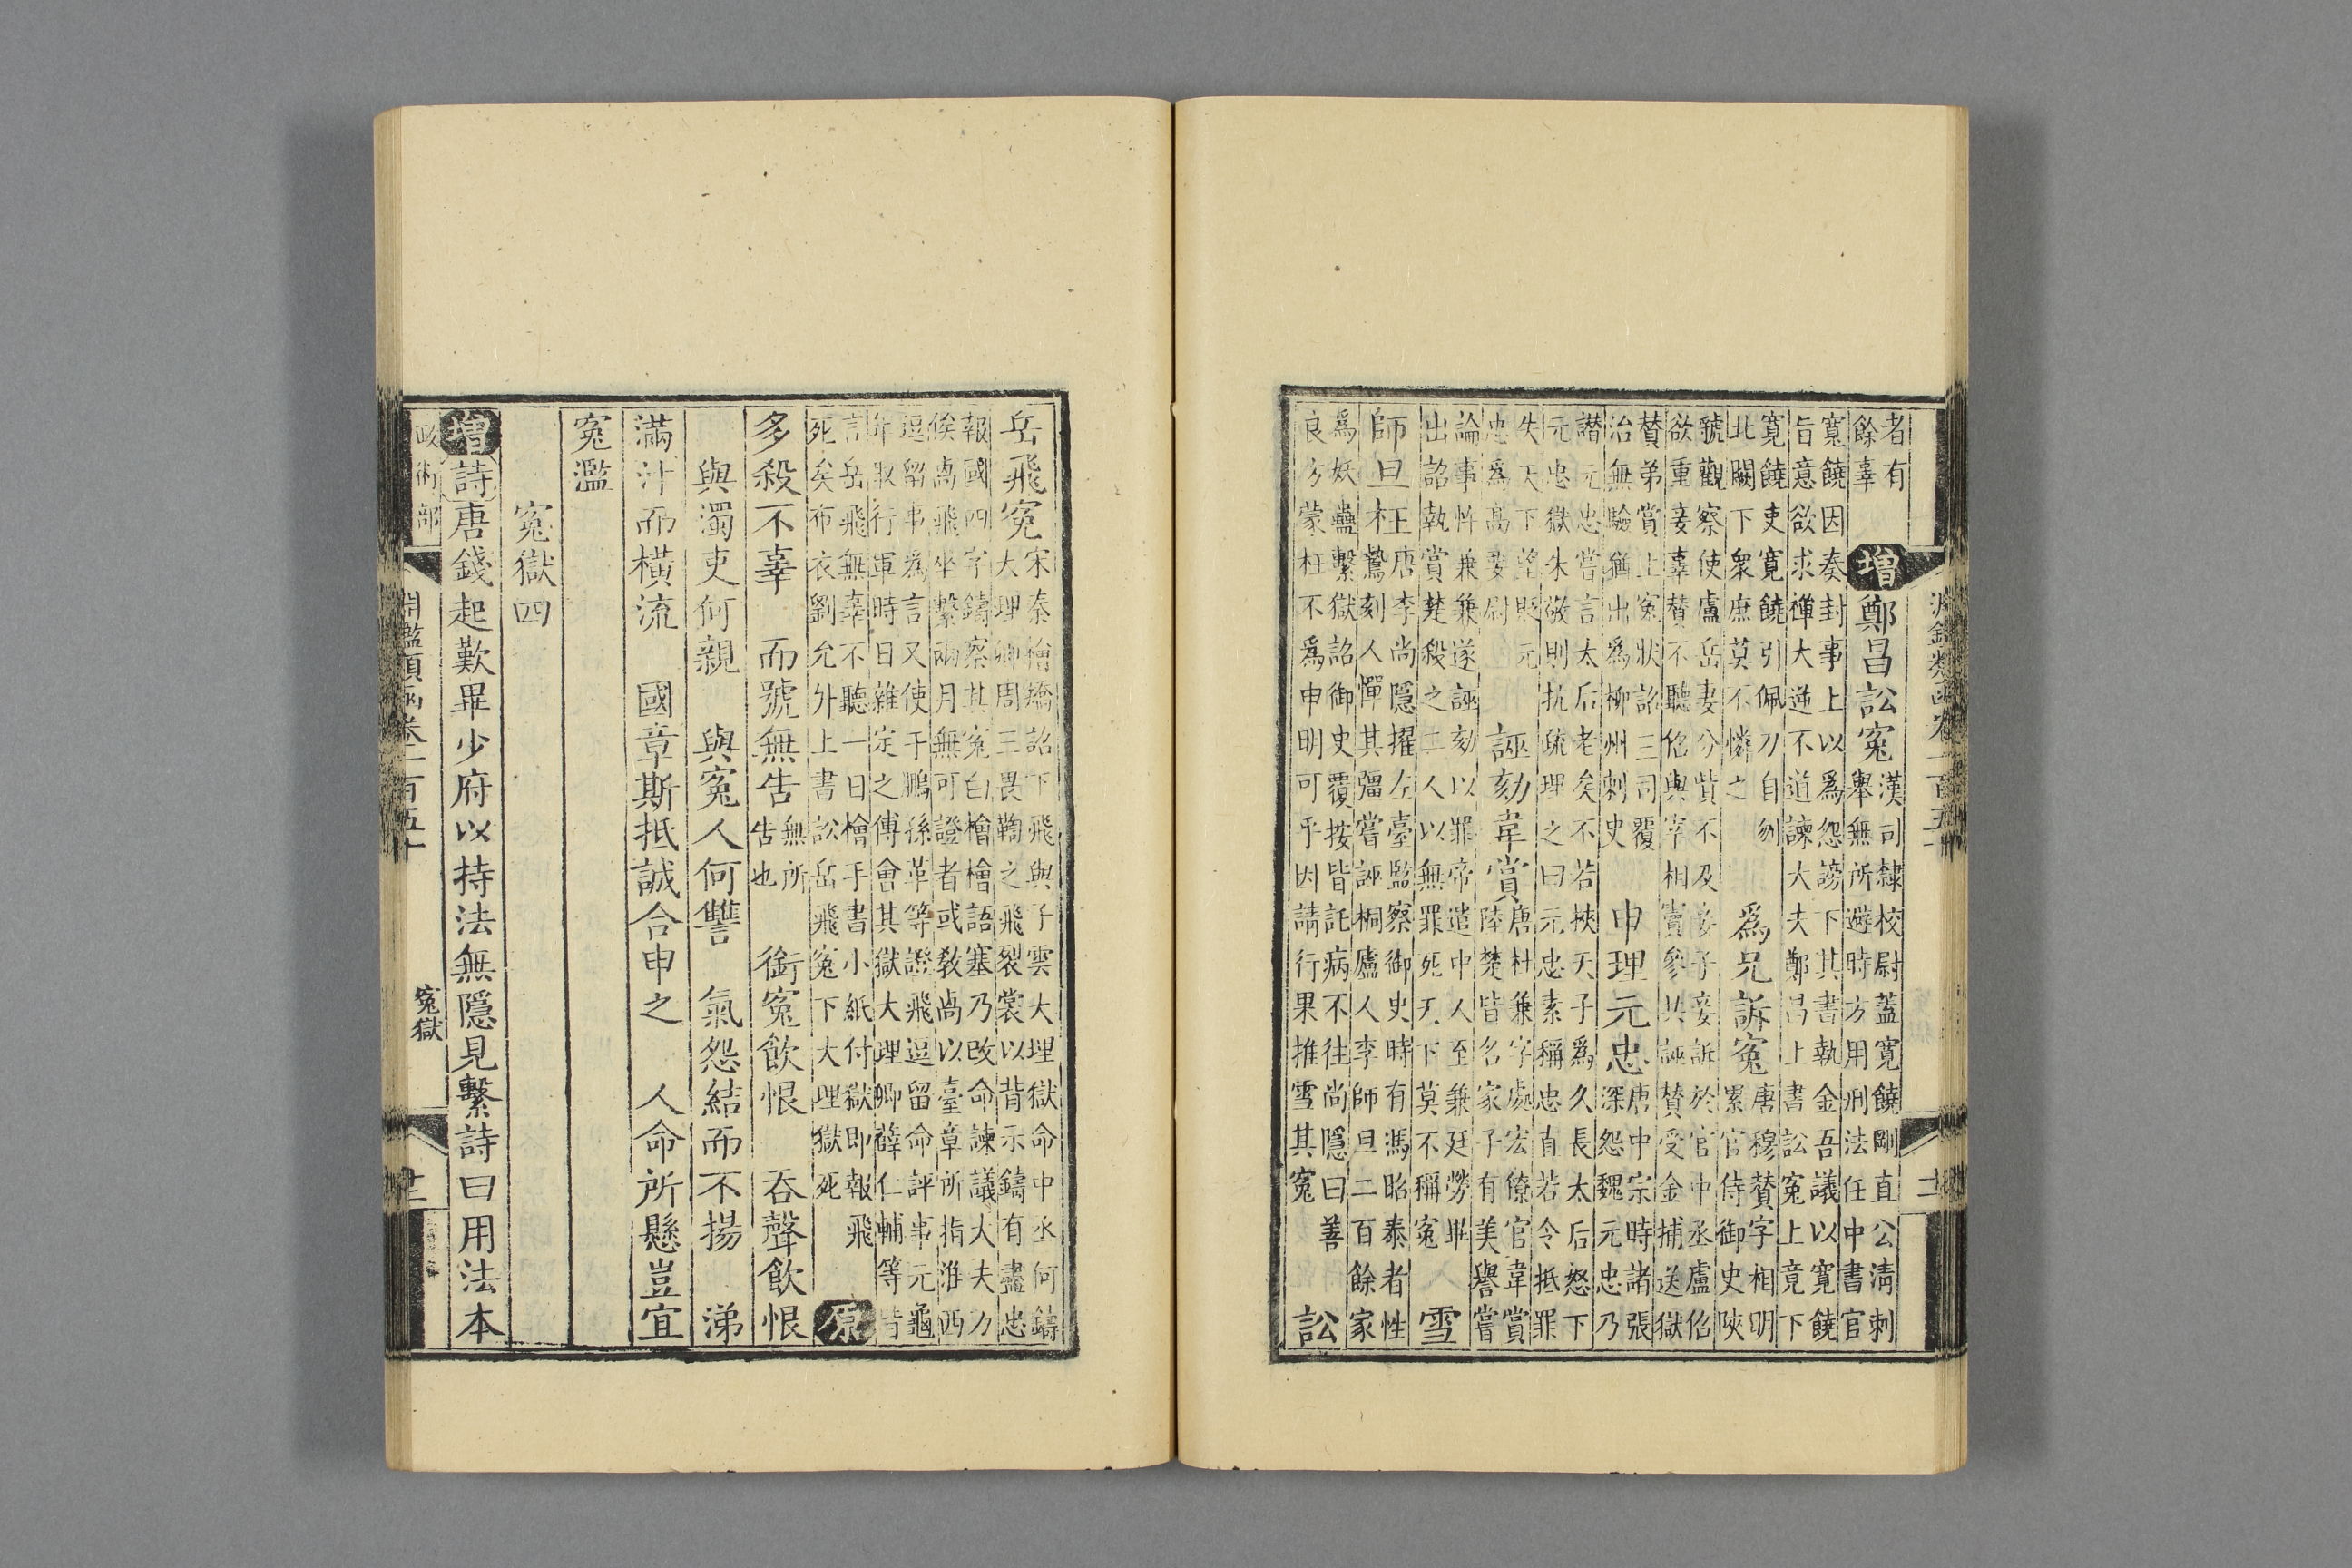 者有
餘辜
增鄭昌訟冤
漢司隸校尉蓋寬饒剛直公清刺
舉無所避時方用刑法任中書官
寬饒因奏封事上以爲怨謗下其書執金吾議以寬饒
旨意欲求禪大逆不道諫大夫鄭昌上書訟冤上竟下
寬饒吏寬饒引佩刀自刎
北闕下衆庶莫不憐之
爲兄訴冤
唐穆贊字相明
累官侍御史陝
虢觀察使盧岳妻分貲不及妾子妾訴於官中丞盧佋
欲重妾辜贊不聽佋與宰相竇參共誣贊受金捕送獄
贊弟賞上冤狀詔三司覆
治無驗猶出爲柳州刺史
申理元忠
唐中宗時諸張
深怨魏元忠乃
譖元忠嘗言太后老矣不若挾天子爲久長太后怒下
元忠獄朱敬則抗疏理之曰元忠素稱忠直若令抵罪
失天下望貶元
忠爲高要尉
誣劾韋賞
唐杜兼字處宏僚官韋賞
陸楚皆名家子有美譽嘗
論事忤兼兼遂誣劾以罪帝遣中人至兼廷勞畢
出詔執賞楚殺之二人以無罪死天下莫不稱冤
雪
師旦枉
唐李尚隱擢左臺監察御史時有馮昭泰者性
鷙刻人憚其彊嘗誣桐廬人李師旦二百餘家
爲妖蠱繫獄詔御史覆按皆託病不往尚隱曰善
良方蒙枉不爲申明可乎因請行果推雪其冤
訟
岳飛冤
宋秦檜矯詔下飛與子雲大理獄命中丞何鑄
大理卿周三畏鞫之飛裂裳以背示鑄有盡忠
報國四字鑄察其冤白檜檜語塞乃改命諫議大夫万
俟卨飛坐繫兩月無可證者或敎卨以臺章所指淮西
逗留事爲言又使于鵬孫革等證飛逗留命評事元龜
年取行軍時日雜定之傅會其獄大理卿薛仁輔等皆
言岳飛無辜不聽一日檜手書小紙付獄即報飛
死矣布衣劉允升上書訟岳飛冤下大理獄死
原
多殺不辜　而號無告
無所
告也
銜冤飲恨　吞聲飲恨
與濁吏何親　與冤人何讐　氣怨結而不揚　涕
滿汁而橫流　國章斯抵誠合申之　人命所懸豈宜
冤濫
冤獄四
增詩唐錢起歎畢少府以持法無隱見繫詩曰用法本
政術部
淵鑑類函卷一百五十
冤獄